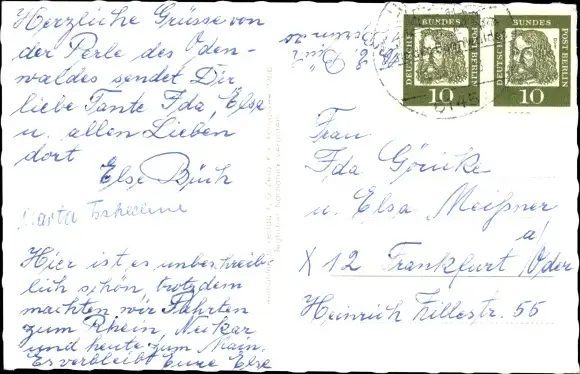 Herzliche Grüsse von
der Perle des Oden-
waldes sendet Dir
liebe Tante Ida, Else
u. allen Lieben
dort
Else Büch
Marta
Hier ist es unbeschreib-
lich schön, trotzdem
machten wir Fahrten
zum Rhein, Neckar
und heute zum Main.
Es verbleibt Eure Else
E. Büch
DEUTSCHE BUNDES POST BERLIN
10
DEUTSCHE BUNDES POST BERLIN
10
Frau
Ida Göricke
u. Elsa Meißner
X 12 Frankfurt a/Oder
Heinrich Zillestr. 55